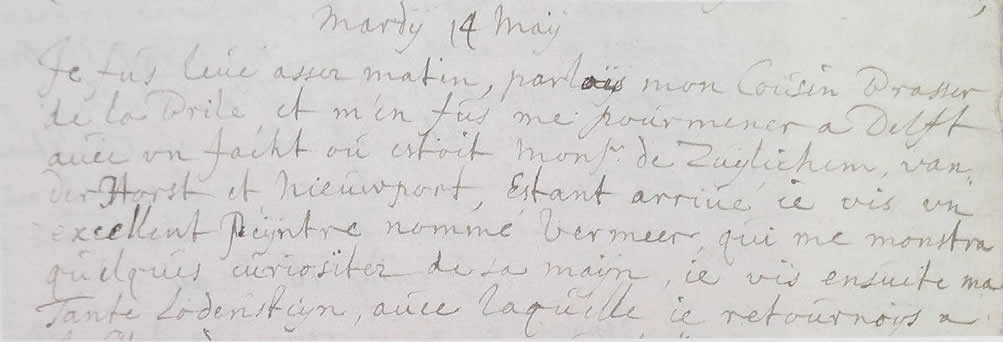 Mardÿ 14 Maÿ
Je fus levé asser matin, parloÿs mon Cousin Brasser
de la Brile et m'en fus me pourmener a Delft
avec vn Jacht ou estoit Monsr. de Zuylichem, van-
der Horst et Nieuwport, Estant arrivé ie vis vn
excellent Peijntre nommé Vermeer, qui me monstra
quelques curiositez de sa maijn, ie vis ensuite ma
Tante Lodensteijn, avec laquelle ie retournoijs a